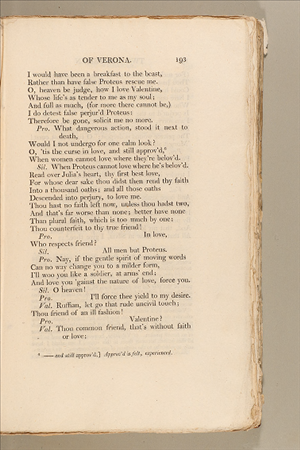 OF VERONA. 193
I would have been a breakfast to the beast,
Rather than have false Proteus rescue me.
O, heaven be judge, how I love Valentine,
Whose life's as tender to me as my soul;
And full as much, (for more there cannot be,)
I do detest false perjur'd Proteus:
Therefore be gone, solicit me no more.
Pro. What dangerous action, stood it next to
death,
Would I not undergo for one calm look?
O, 'tis the curse in love, and still approv'd,⁸
When women cannot love where they're belov'd.
Sil. When Proteus cannot love where he's belov'd.
Read over Julia's heart, thy first best love,
For whose dear sake thou didst then rend thy faith
Into a thousand oaths; and all those oaths
Descended into perjury, to love me.
Thou hast no faith left now, unless thou hadst two,
And that's far worse than none; better have none
Than plural faith, which is too much by one:
Thou counterfeit to thy true friend!
Pro. In love,
Who respects friend?
Sil. All men but Proteus.
Pro. Nay, if the gentle spirit of moving words
Can no way change you to a milder form,
I'll woo you like a soldier, at arms' end;
And love you 'gainst the nature of love, force you.
Sil. O heaven!
Pro. I'll force thee yield to my desire.
Val. Ruffian, let go that rude uncivil touch;
Thou friend of an ill fashion!
Pro. Valentine?
Val. Thou common friend, that's without faith
or love;
⁸ —— and still approv'd,] Approv'd is felt, experienced.